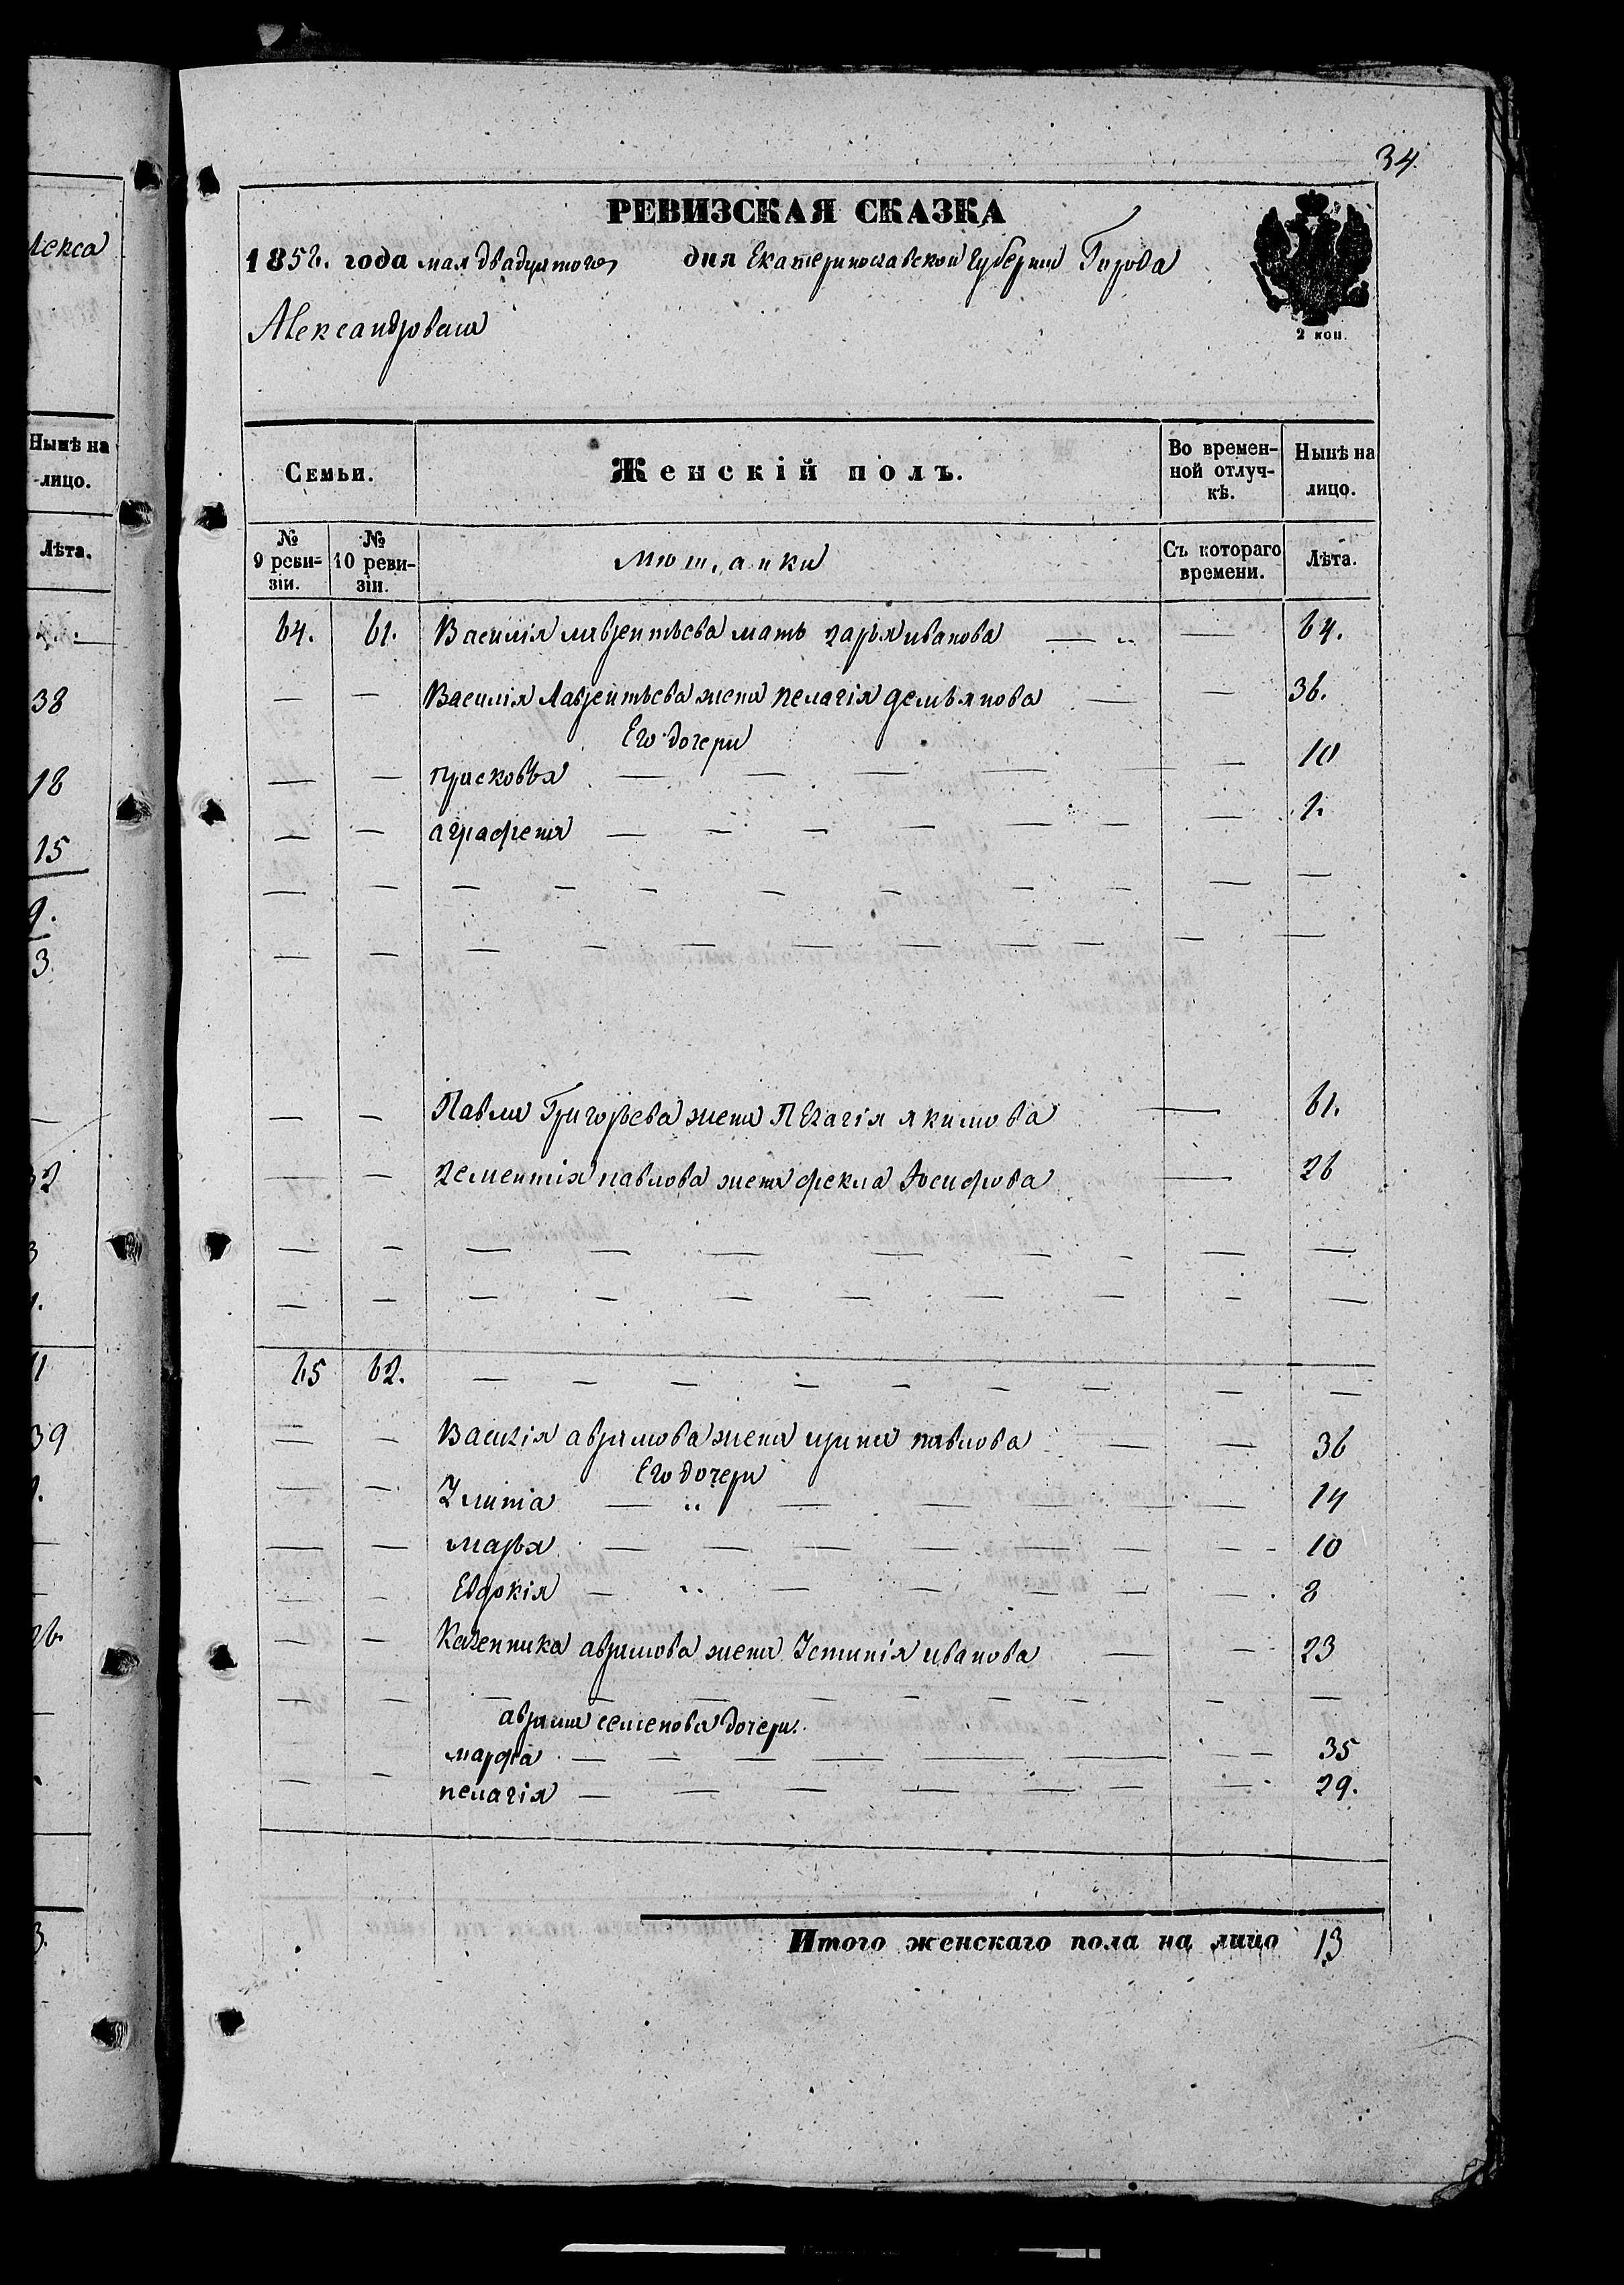 лекса
Нынѣ на
лицо.
Лѣта.
38
18
15
9.
3
39
34
РЕВИЗСКАЯ СКАЗКА
1858. года мая двадцятого дня Екатеринославской Губернии Города
Александровска
2 коп.
Семьи.
Женскій полъ.
Во времен-
ной отлуч-
кѣ.
Нынѣ на
лицо.
№
9 реви-
зіи.
№
10 реви-
зіи.
мющанки
Съ котораго
времени.
Лѣта.
64. 61. Василія лаврентьева мать дарья иванова 64.
Василія Лаврентьева жена пелагія демьянова 36.
Его дочери
присковья 10
аграфена 1.
Павла Григорьева жена Пелагія якимова 61.
дементія павлова жена фекла Іосифова 26
65 62.
Василія аврамова жена ирина павлова 36
Его дочери
Улита 14
марья 10
Евдокія 8
Каленника аврамова жена Устинія иванова 23
аврама семенова дочери.
марфа 35
пелагія 29.
Итого женскаго пола на лицо 13